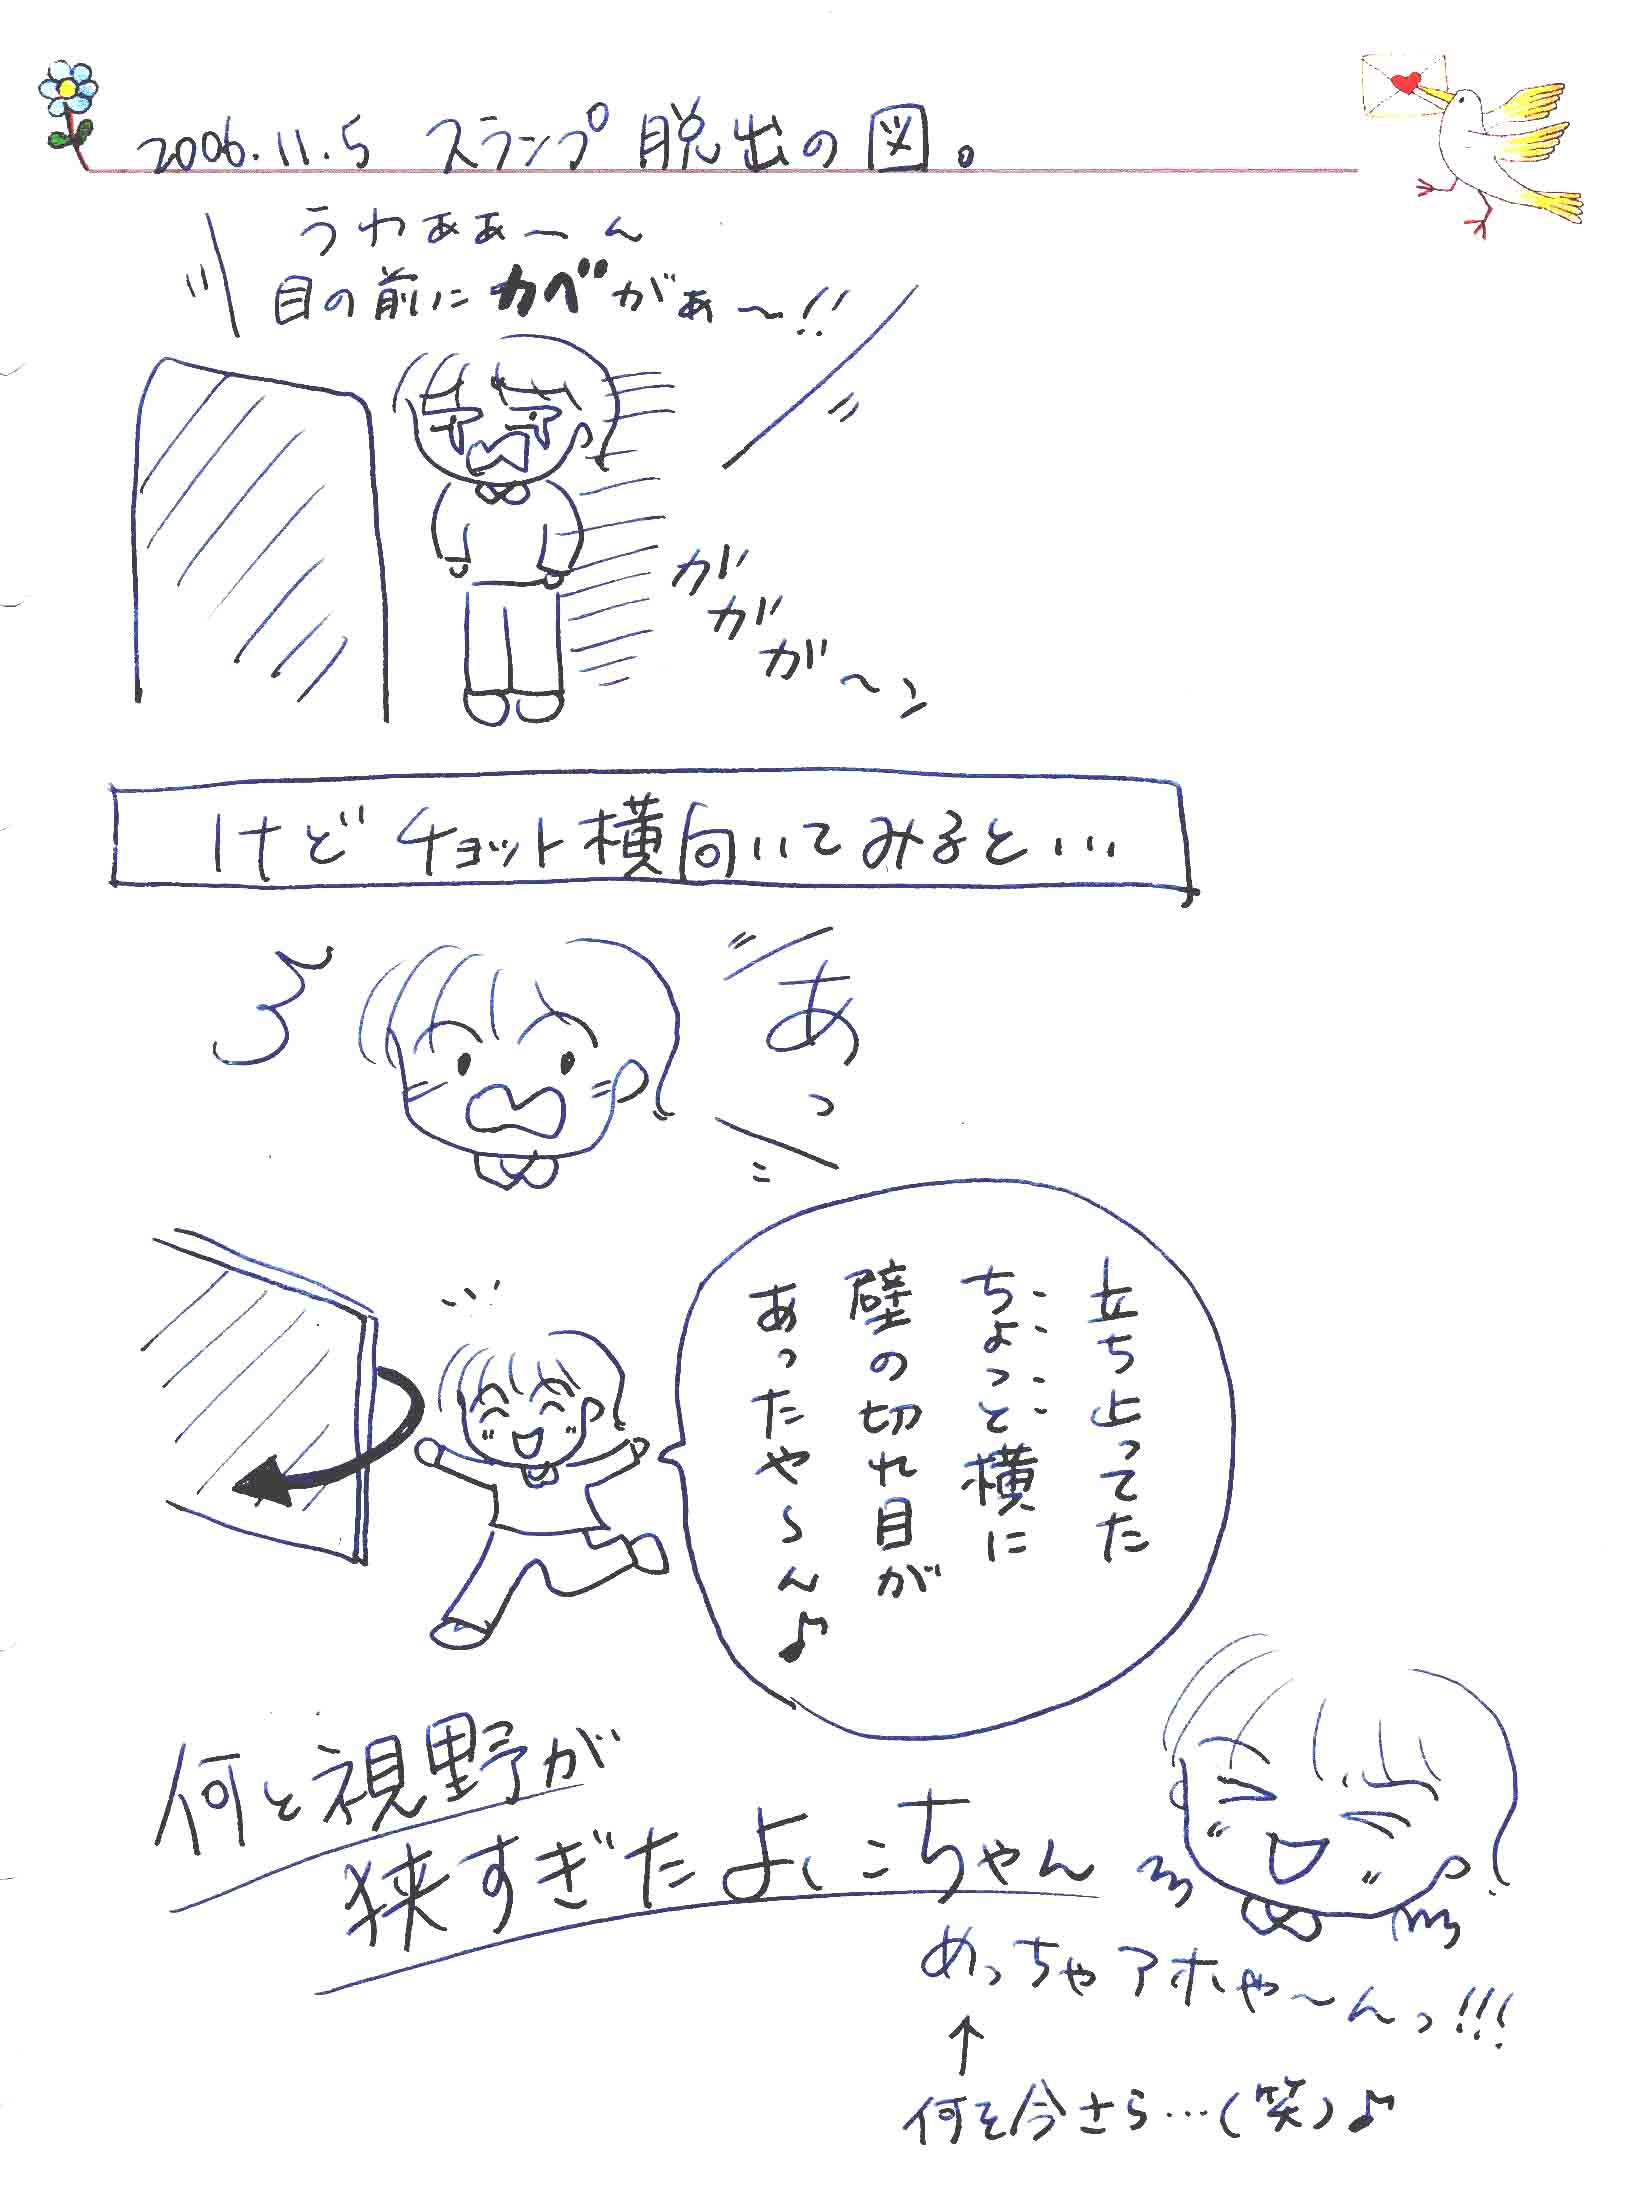 2006.11.5 スランプ脱出の図。
うわぁぁーん
目の前にカベがぁ〜!!
ががが〜ン
けどチョット横向いてみると…
あっ
立ち止ってた
ちょっと横に
壁の切れ目が
あったや〜ん♪
何と視野が
狭すぎたよしこちゃん
めっちゃアホや〜んっ!!!
↑
何を今さら…(笑)♪